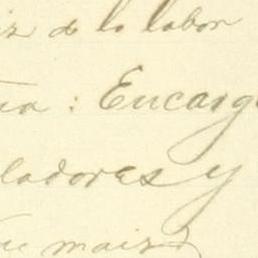 iz de lo labor
ia : Encarg
ladores y
maiz